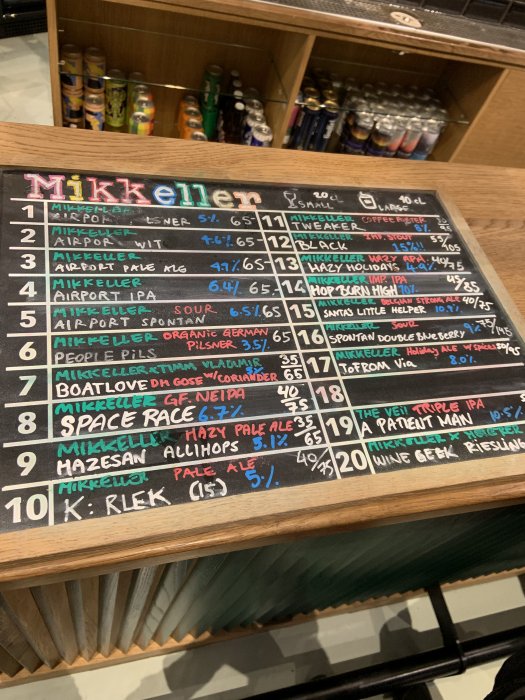 Mikkeller 20 cl 40 cl
SMALL LARGE
1 MIKKELLER
AIRPORT 5% 65-
2 MIKKELLER
AIRPORT WIT 4.6% 65-
3 MIKKELLER
AIRPORT PALE ALE 4.9% 65-
4 MIKKELLER
AIRPORT IPA 6.4% 65-
5 MIKKELLER SOUR
AIRPORT SPONTAN 6.5% 65
6 MIKKELLER ORGANIC GERMAN
PEOPLE PILS PILSNER 3.5% 65
7 MIKKELLER X TIMM VLADIMIR 35
BOATLOVE DH GOSE W/CORIANDER 65
8 MIKKELLER G.F. NEIPA 40
SPACE RACE 6.7% 75
9 MIKKELLER HAZY PALE ALE 35
HAZESAN ALLIHOPS 5.1% 65
10 MIKKELLER PALE ALE 40/75
K:RLEK (15) 5.%
11 MIKKELLER COFFEE PORTER
TWEAKER
12 MIKKELLER IMP. STOUT 55
BLACK 105
13 MIKKELLER HAZY APA 40/
HAZY HOLIDAYS 4.9% 75
14 MIKKELLER IMP. IPA 45/
HOP BURN HIGH 10% 85
15 MIKKELLER BELGIAN STRONG ALE 40/75
SANTA'S LITTLE HELPER 10.9%
16 MIKKELLER SOUR
SPONTAN DOUBLE BLUEBERRY 9% 75/145
17 MIKKELLER Holiday ALE w Spices 50/95
TOFROM Via 8.0%
18
19 THE VEIL TRIPLE IPA
A PATIENT MAN 10.5%
20 MIKKELLER X
WINE GEEK RIESLING